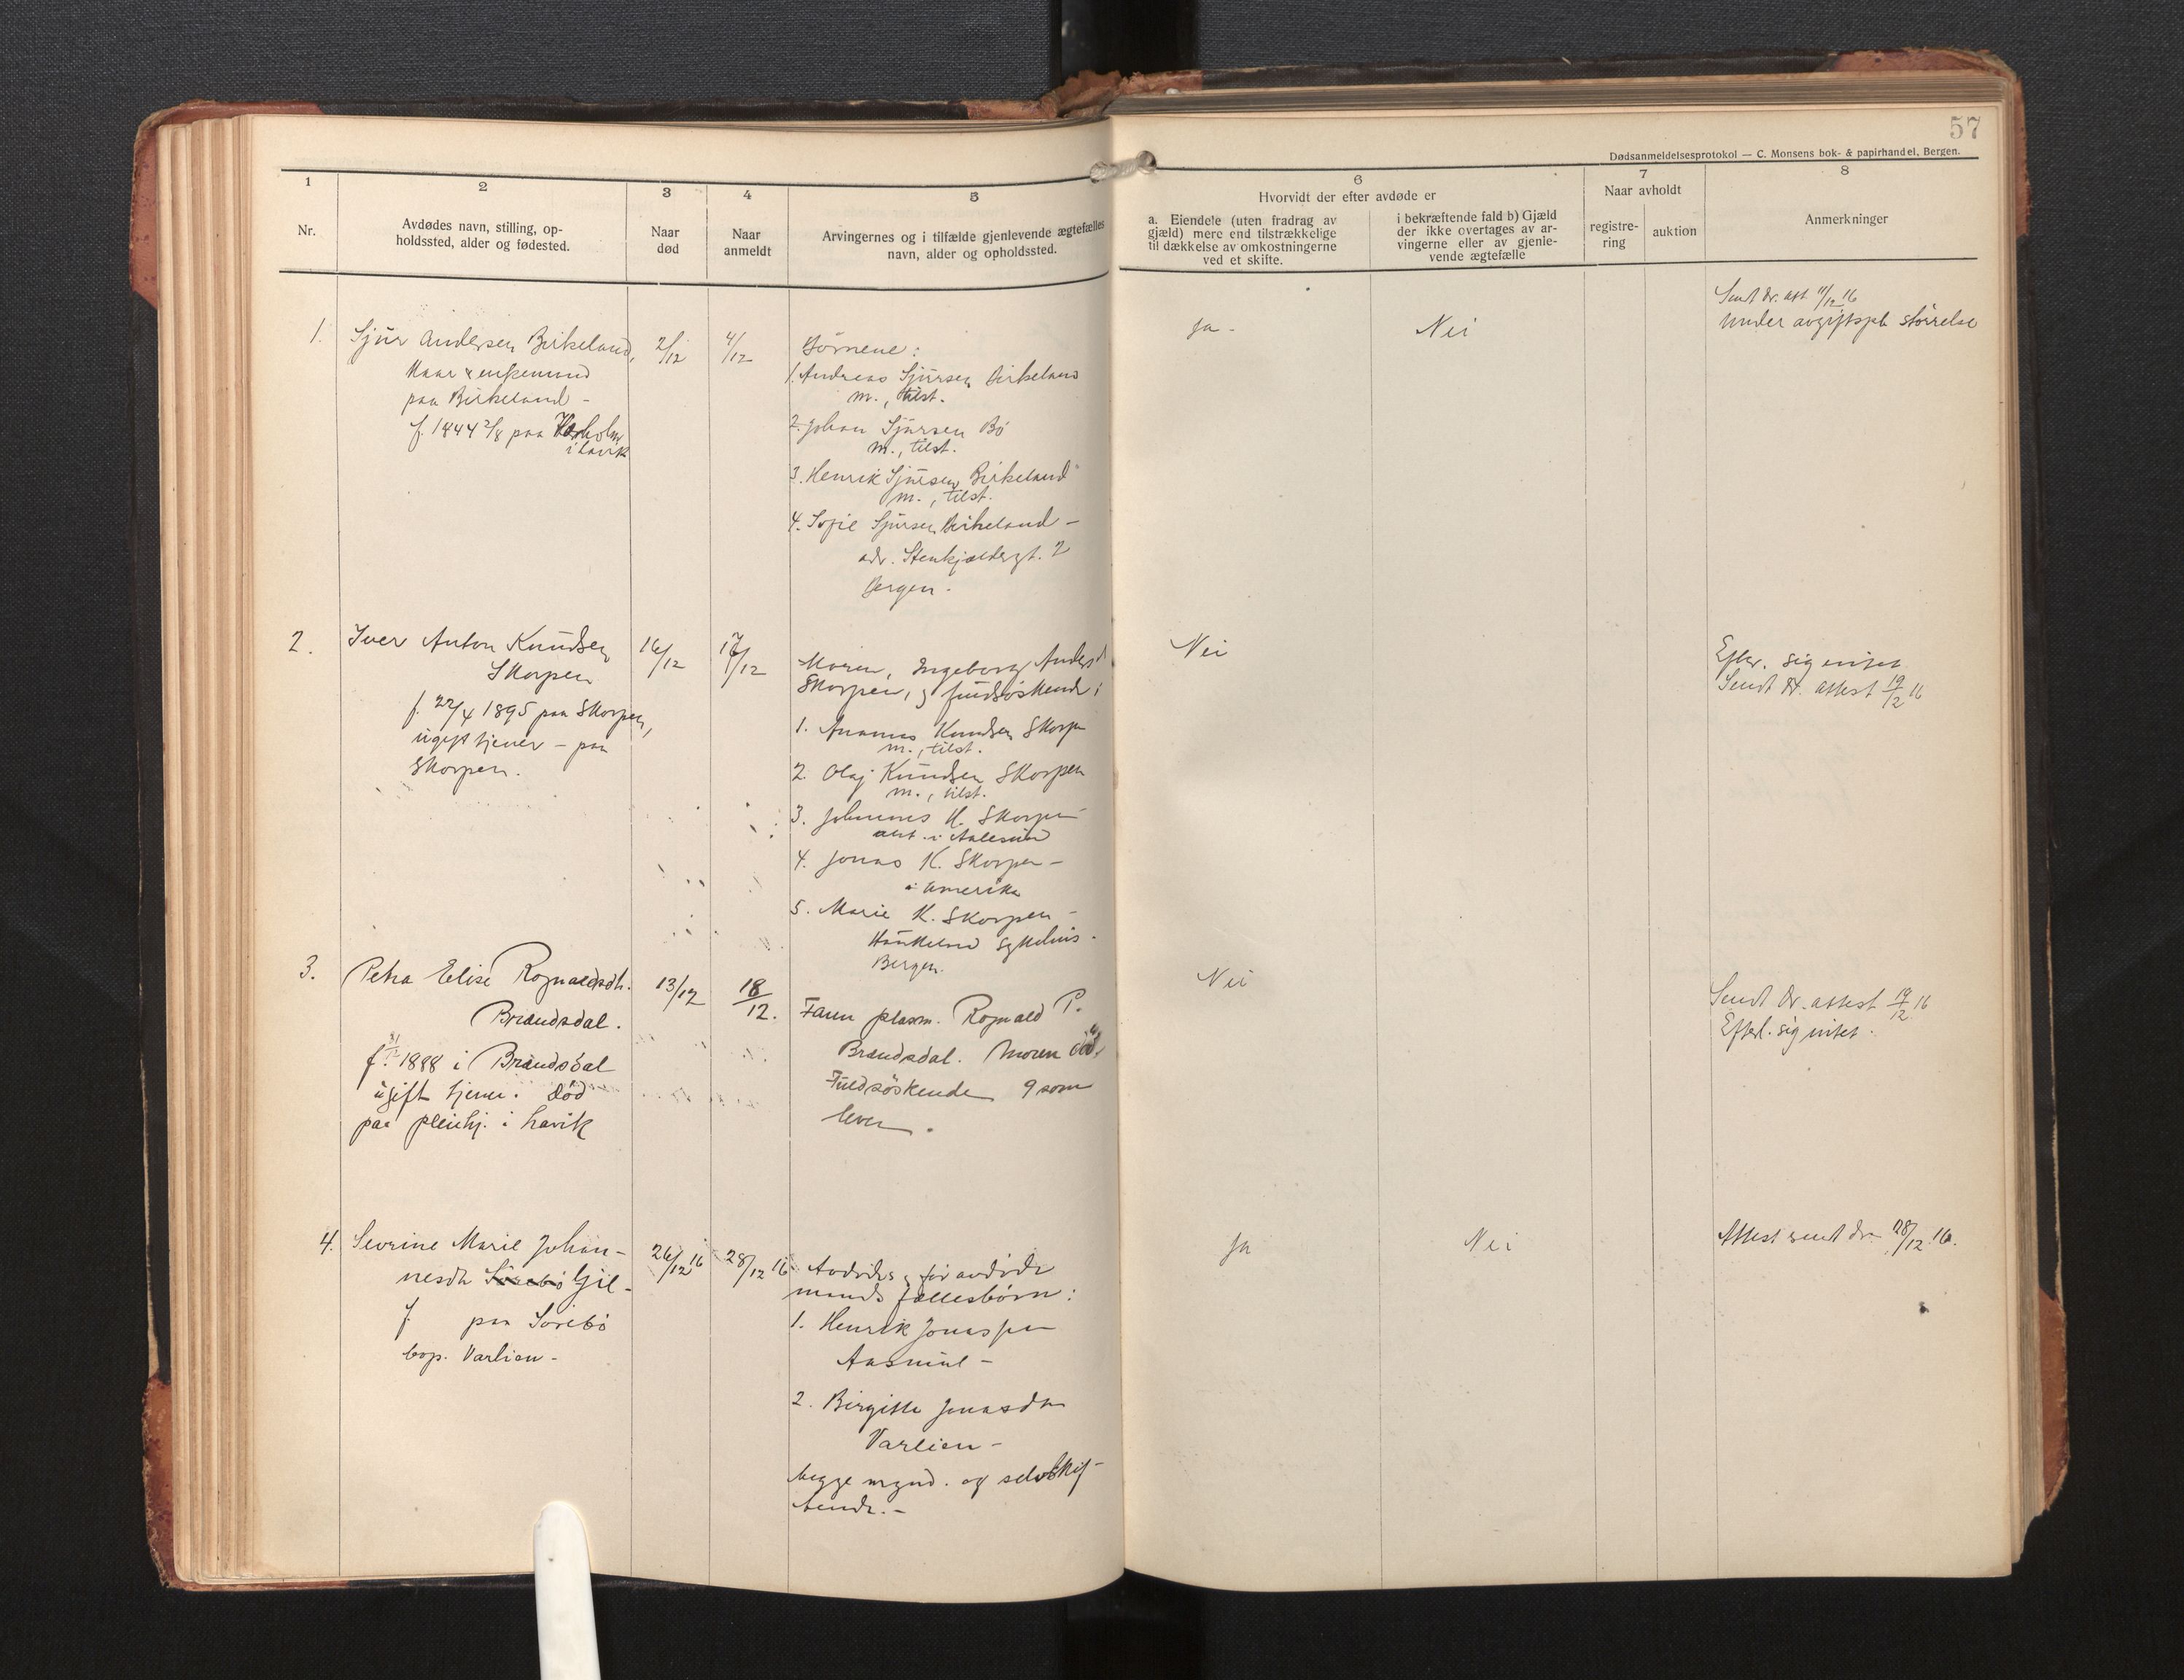 57
Dødsanmeldelsesprotokol — C. Monsens bok- & papirhandel, Bergen.
1
Nr.
2
Avdødes navn, stilling, op-
holdssted, alder og fødested.
3
Naar
død
4
Naar
anmeldt
5
Arvingernes og i tilfælde gjenlevende ægtefælles
navn, alder og opholdssted.
6
Hvorvidt der efter avdøde er
a. Eiendele (uten fradrag av
gjæld) mere end tilstrækkelige
til dækkelse av omkostningerne
ved et skifte.
i bekræftende fald b) Gjæld
der ikke overtages av ar-
vingerne eller av gjenle-
vende ægtefælle
7
Naar avholdt
registre-
ring
auktion
8
Anmerkninger
1.
Sjur Andersen Birkeland,
Kaar & enkemand
paa Birkeland -
f. 1844 2/8 paa
i Lavik
2/12
4/12
Børnene:
1. Andreas Sjursen Birkeland
m., tilst.
2. Johan Sjursen Bö
m., tilst.
3. Henrik Sjursen Birkeland
m., tilst.
4. Sofie Sjursen Birkeland -
adr. Stenkjeldergt. 2
Bergen.
Ja -
Nei
Sendt dr. att. 11/12 16
Under avgiftspl. størrelse
2.
Iver Anton Knudsen
Skorpen
f. 22/4 1895 paa Skorpen,
ugift tjener - paa
Skorpen.
16/12
17/12
Moren, Ingeborg Andersd
Skorpen, & fuldsøskende:
1. Knudsen Skorpe
m., tilst.
2. Olaf Knudsen Skorpen
m., tilst.
3. Johannes K. Skorpen
i Aalesund
4. Jonas K. Skorpen -
i Amerika
5. Marie K. Skorpen -
Haukeland sykehus -
Bergen.
Nei
Efter. sig intet
Sendt dr. attest 19/12 16
3.
Petra Elise Rognaldsdtr.
Brandsdal.
f. 1888 i Brandsdal
ugift tjener. död
paa pleiehj. i Lavik
13/12
18/12.
Faren plasm. Rognald P.
Brandsdal. Moren död.
Fuldsöskende 9 som
lever.
Nei
Sendt dr. attest 19/12 16
Efterl. sig intet.
4.
Sevrine Marie Johan-
nesdtr Sörebö Gil-
f. paa Sörebö
bop. Varlien -
26/12 16
28/12 16
Avdödes & før avdöde
mands fællesbörn:
1. Henrik Jonassen
-
2. Birgitte Jonasdtr
Varlien -
begge mynd. og selvskif-
tende. -
Ja
Nei
Attest sendt dr 28/12 16.